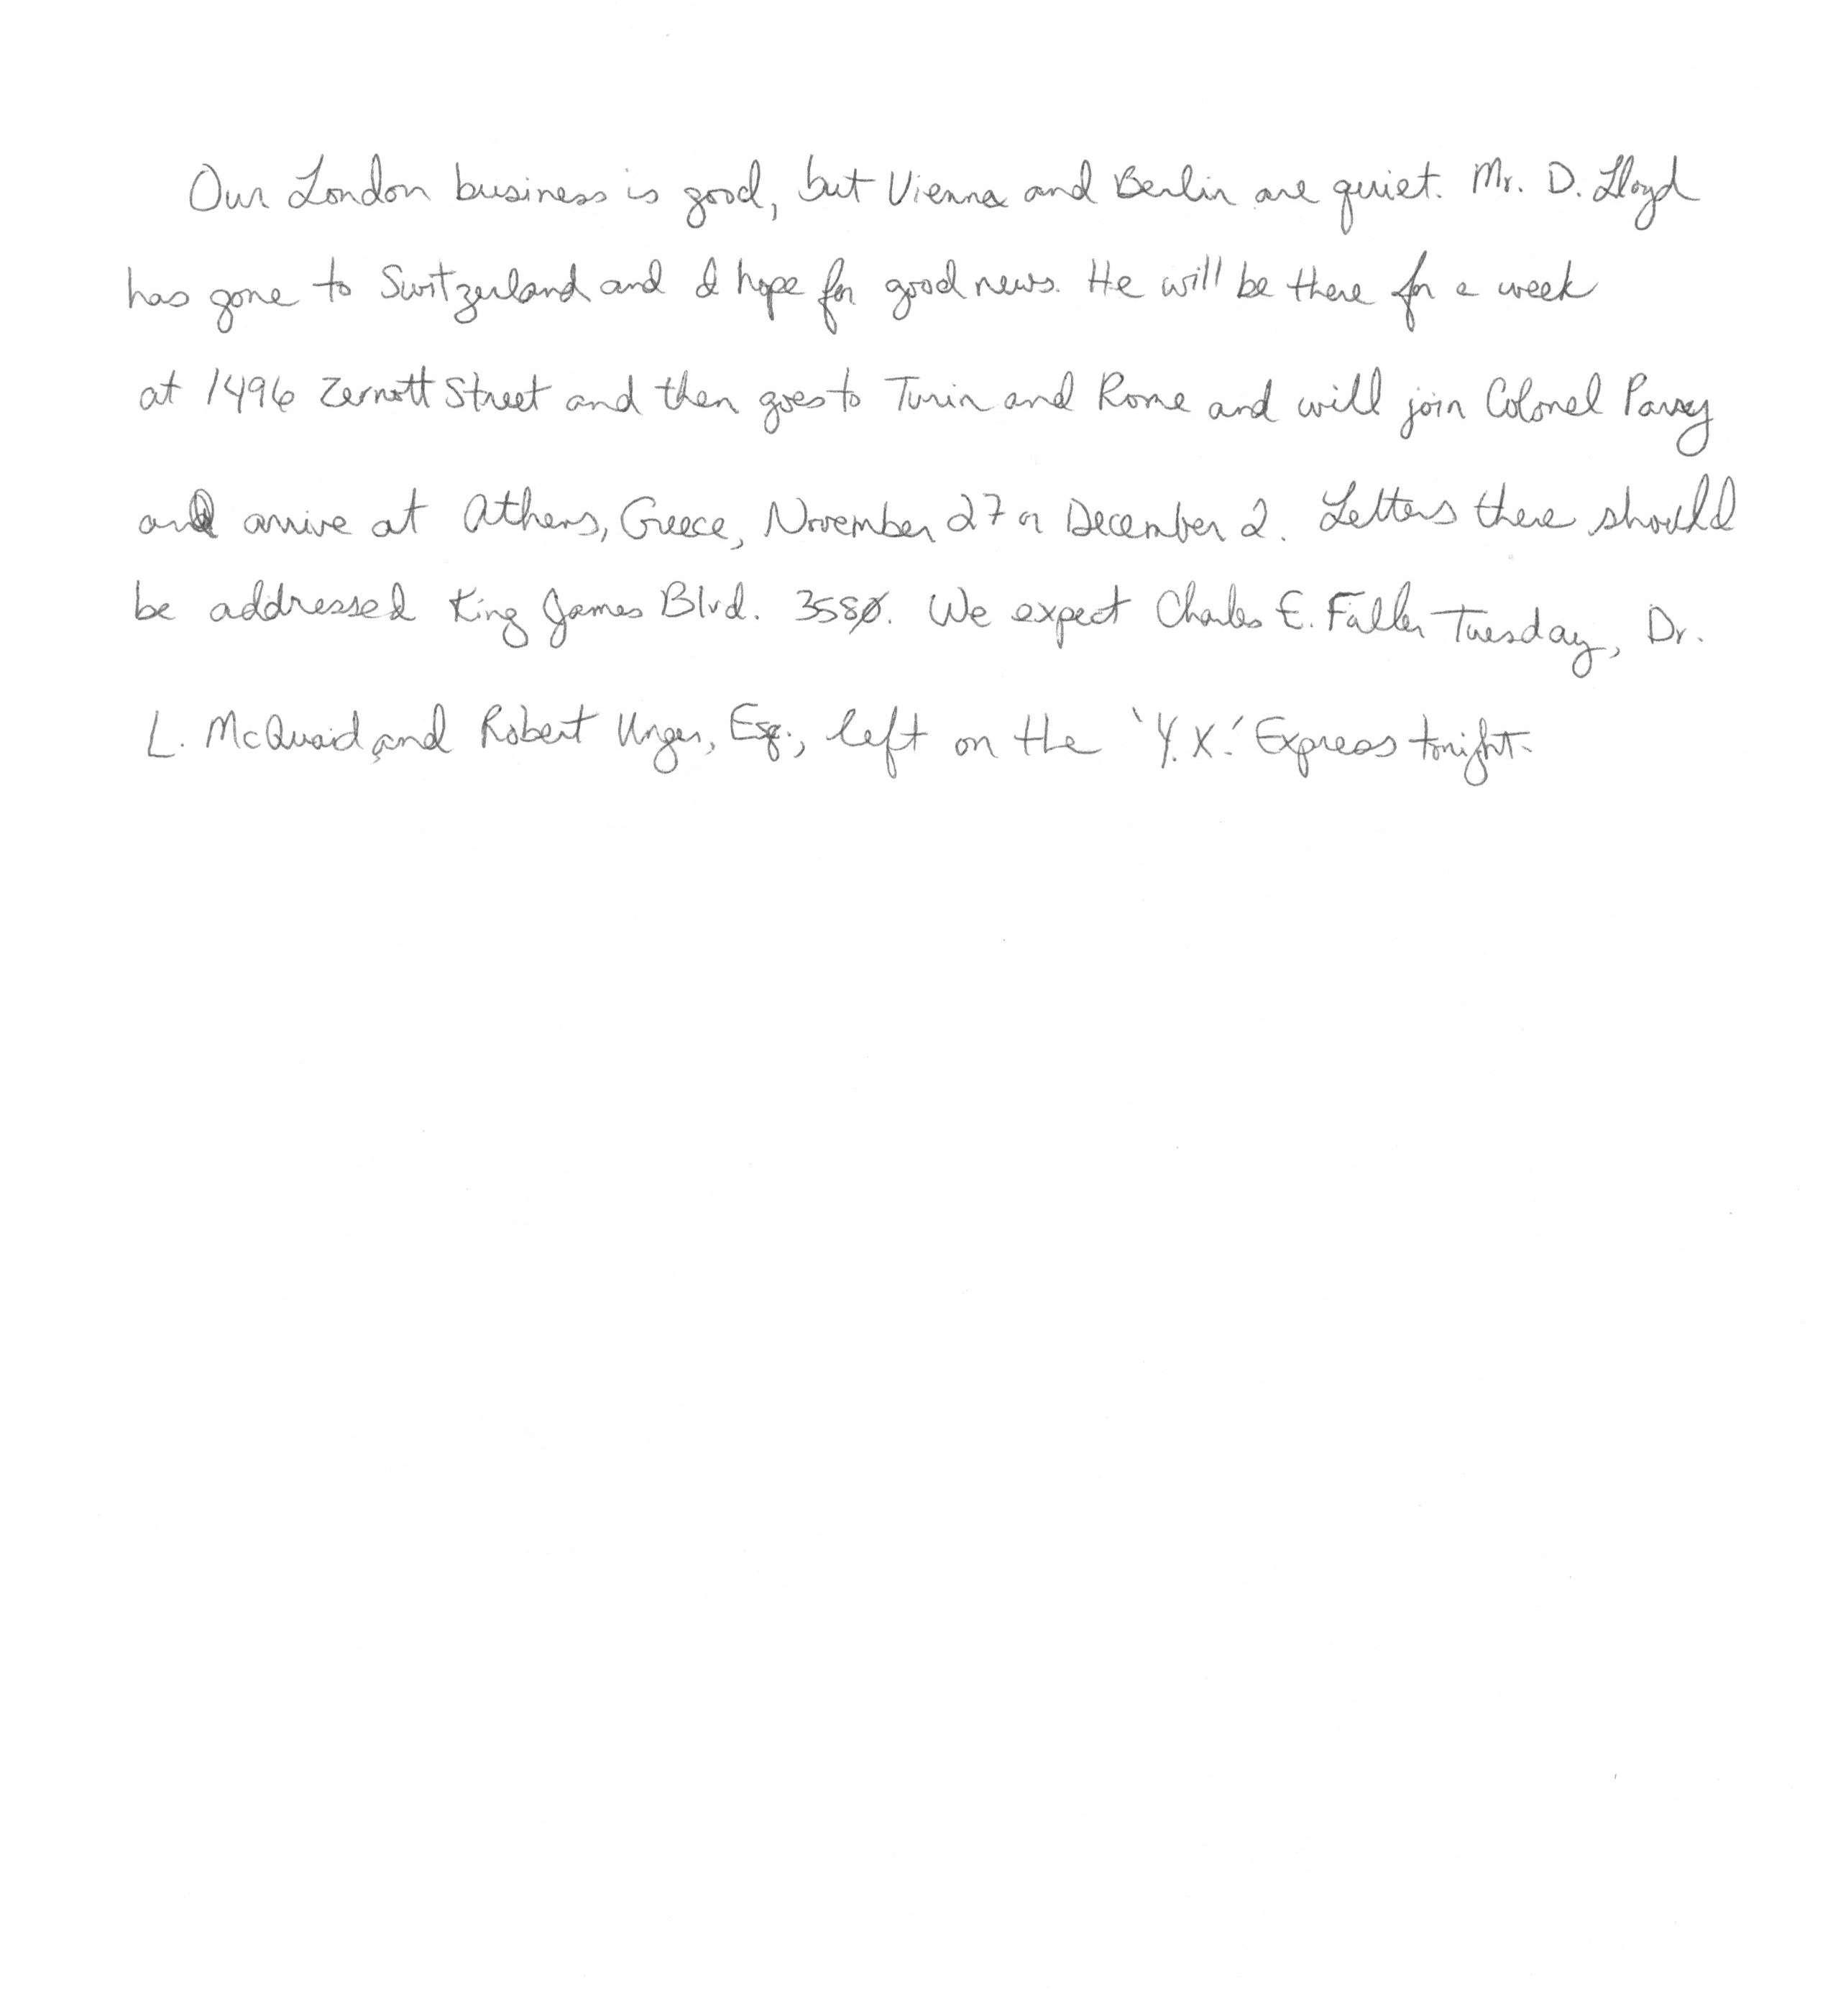 Our London business is good, but Vienna and Berlin are quiet. Mr. D. Lloyd
has gone to Switzerland and I hope for good news. He will be there for a week
at 1496 Zermott Street and then goes to Turin and Rome and will join Colonel Parry
and arrive at Athens, Greece, November 27 or December 2. Letters there should
be addressed King James Blvd. 3580. We expect Charles E. Fuller Tuesday, Dr.
L. McQuaid and Robert Unger, Esq., left on the 'Y.X.' Express tonight.